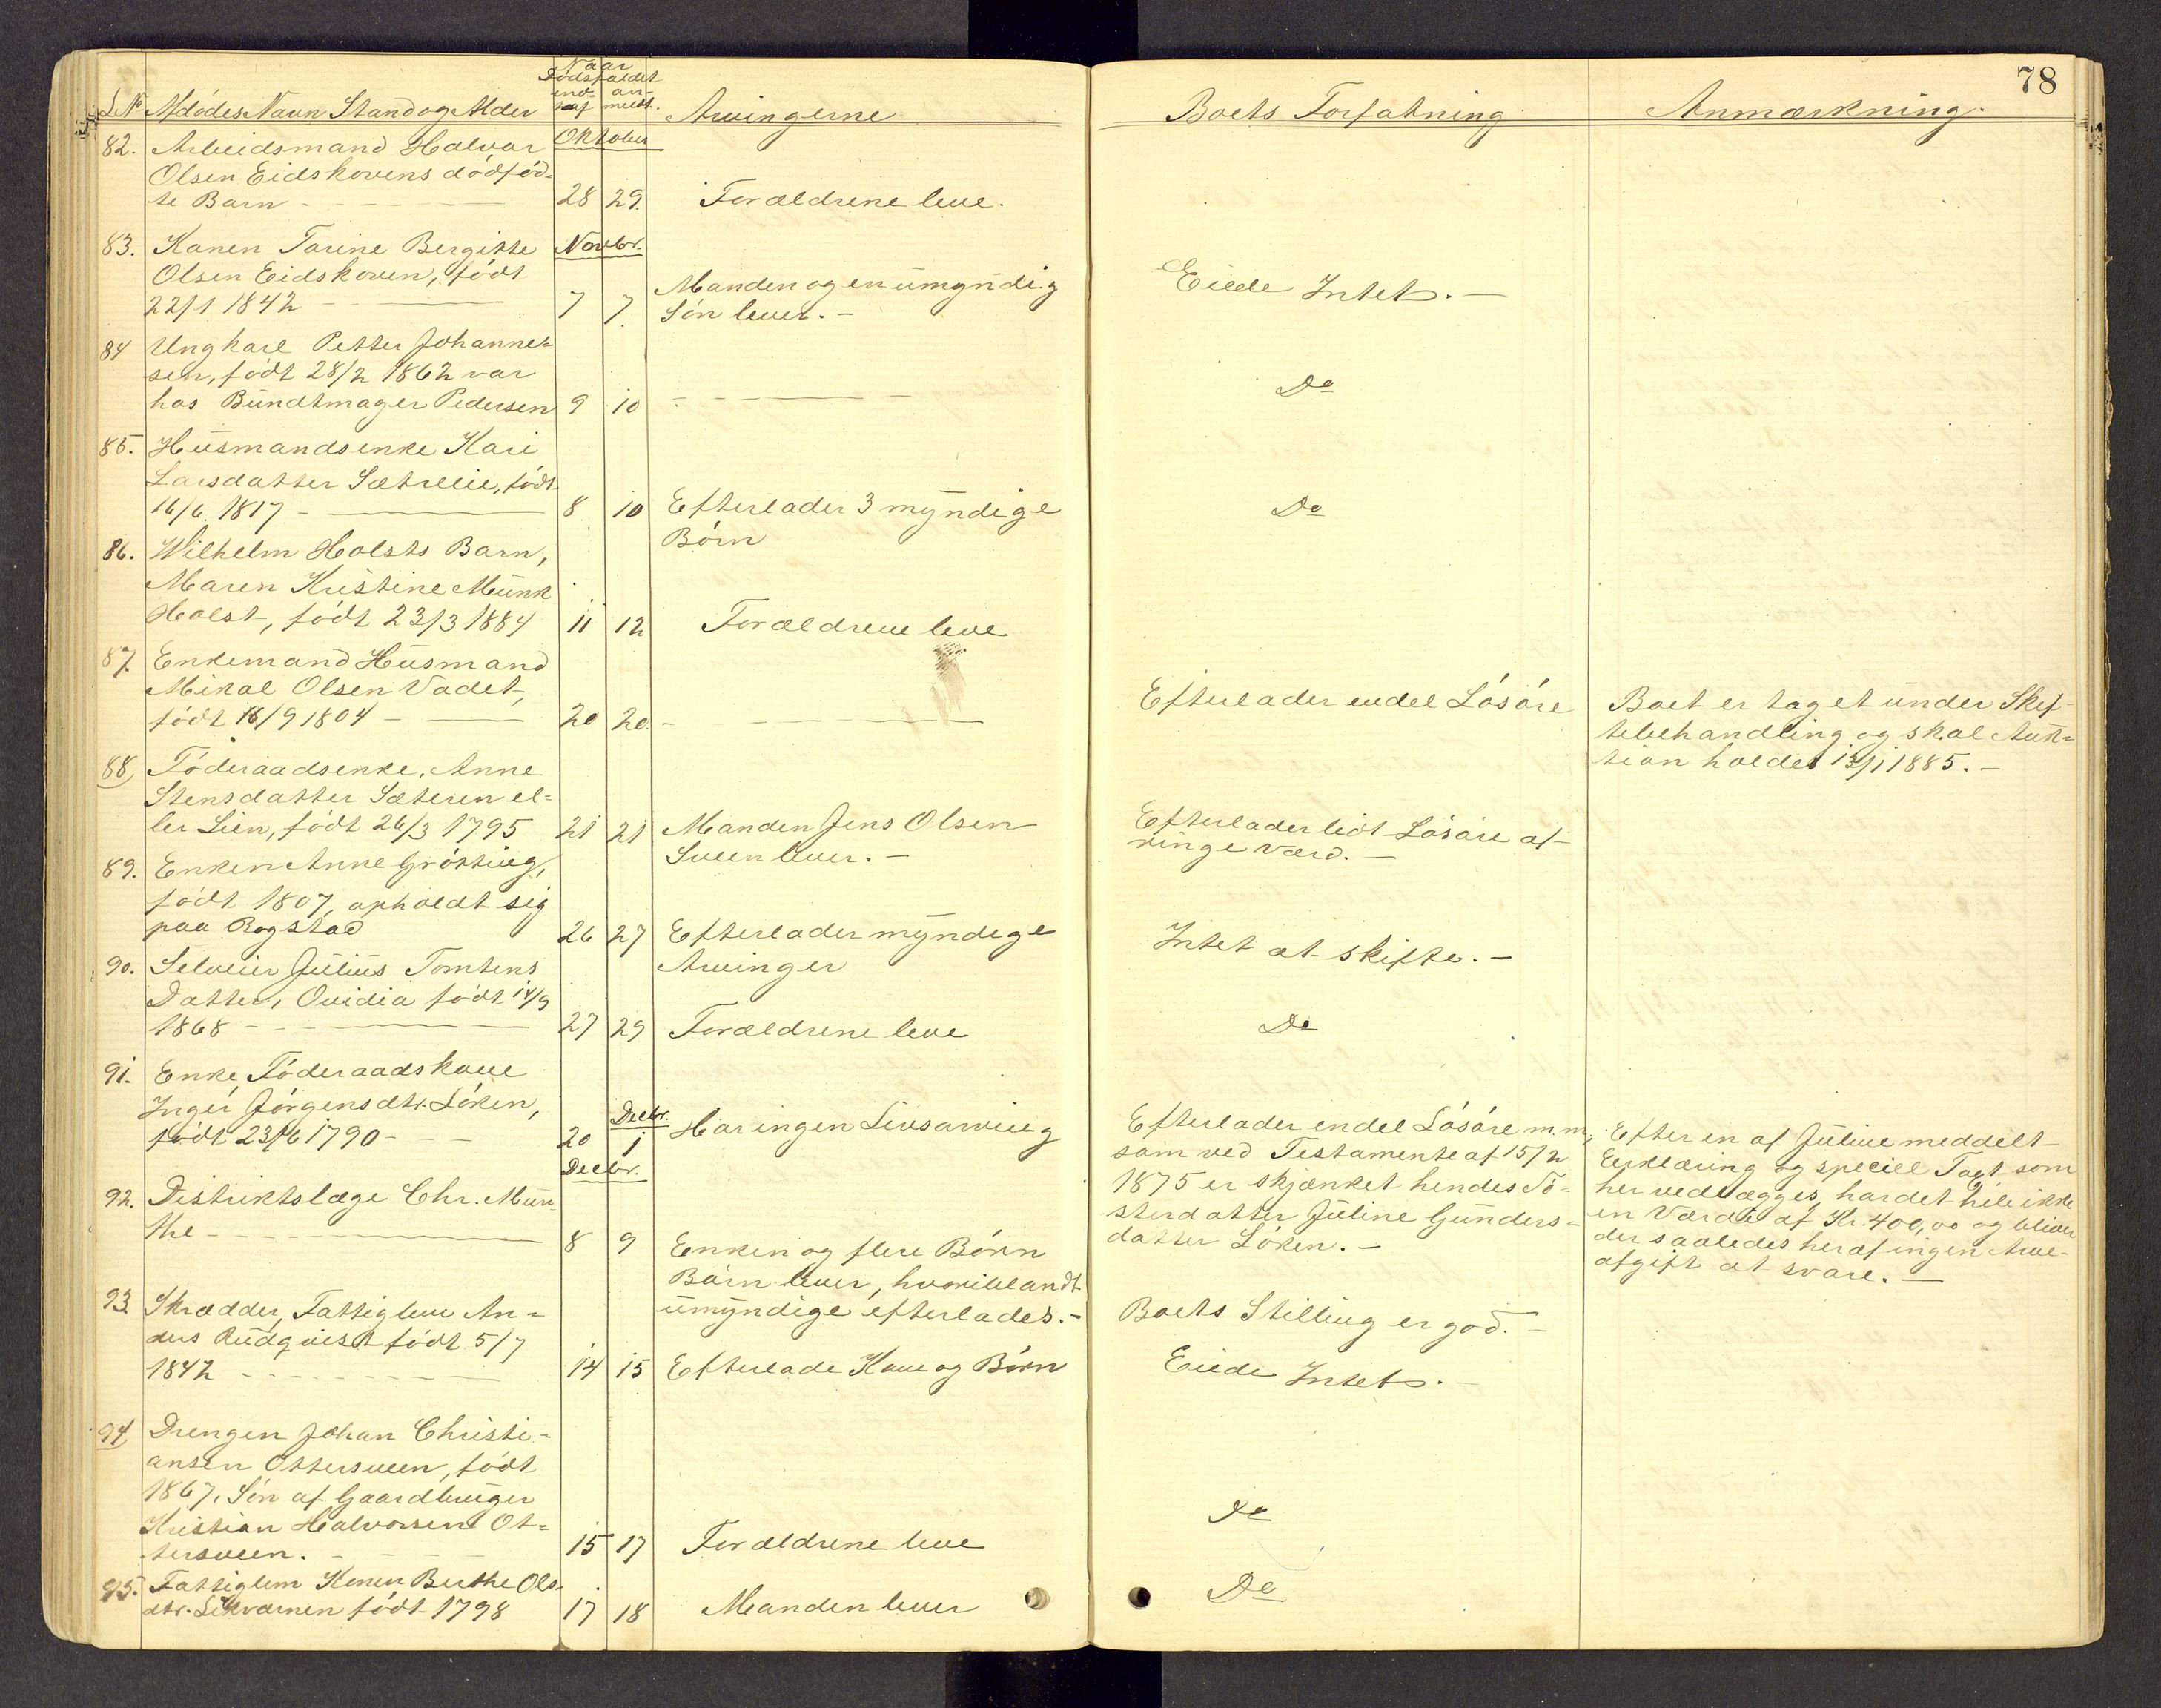 78
Naar
Dødsfaldet
L.No Afdødes Navn Stand og Alder ind- traf an- meldt. Arvingerne Boets Forfatning Anmærkning.
82. Arbeidsmand Halvor Oktober
Olsen Eidskovens dødfød-
te Barn 28 29. Forældrene leve.
83. Konen Tarine Bergitte Novbr.
Olsen Eidskoven, født
22/1 1842 7 7. Manden og en umyndig Eiede Intet.
Søn lever.
84 Ungkarl Petter Johannes-
sen, født 28/2 1862 var Do
hos Bundtmager Pedersen 9 10
85. Husmandsenke Kari
Larsdatter Sætreeie, født
16/6. 1817 8 10 Efterlader 3 myndige Do
Børn
86. Wilhelm Holsts Barn,
Maren Kristine Munk
Holst, født 23/3 1884 11 12 Forældrene leve
87. Enkemand Husmand
Mikal Olsen Vadet, Efterlader endel Løsøre Boet er taget under Skif-
født 16/9 1804 20 20. tebehandling og skal Auk-
tion holdes 13/1 1885.
88, Føderaadsenke, Anne
Stensdatter Sæteren el-
ler Lien, født 26/3 1795 21 21 Manden Jens Olsen Efterlader lidt Løsøre af
Sveen lever. ringe Værd.
89. Enken Anne Grøsting,
født 1807, opholdt sig
paa Rogstad 26 27 Efterlader myndige Intet at skifte.
Arvinger
90. Selveier Julius Tomtens
Datter, Ovidia født 14/9
1868 27 29 Forældrene leve Do
91. Enke, Føderaadskone
Inger Jørgensdtr. Løken, Decbr.
født 23/6 1790 20 1 Har ingen Livsarving
Efterlader endel Løsøre m.m,
som ved Testamente af 15/2
1875 er skjænket hendes Sø-
sterdatter Juline Gunders-
datter Løken.
Efter en af Juline meddelt
Erklæring og speciel Taxt som
her vedlægges, har det hele ikke
en Værdi af Kr. 400,00 og bliver
der saaledes heraf ingen Arve-
afgift at svare.
Decbr.
92. Distriktslæge Chr. Mun-
the 8 9 Enken og flere Børn
Børn lever, hvoriblandt
umyndige efterlades. Boets Stilling er god.
93. Skrædder, Fattiglem An-
ders Rudqvist født 5/7
1842 14 15 Efterlade Kone og Børn Eiede Intet.
94, Drengen Johan Christi-
ansen Ottersveen, født
1867, Søn af Gaardbruger
Kristian Halvorsen Ot- Do
tersveen. 15 17 Forældrene leve
95. Fattiglem Konen Berthe Ols-
dtr. født 1798 17 18 Manden lever Do